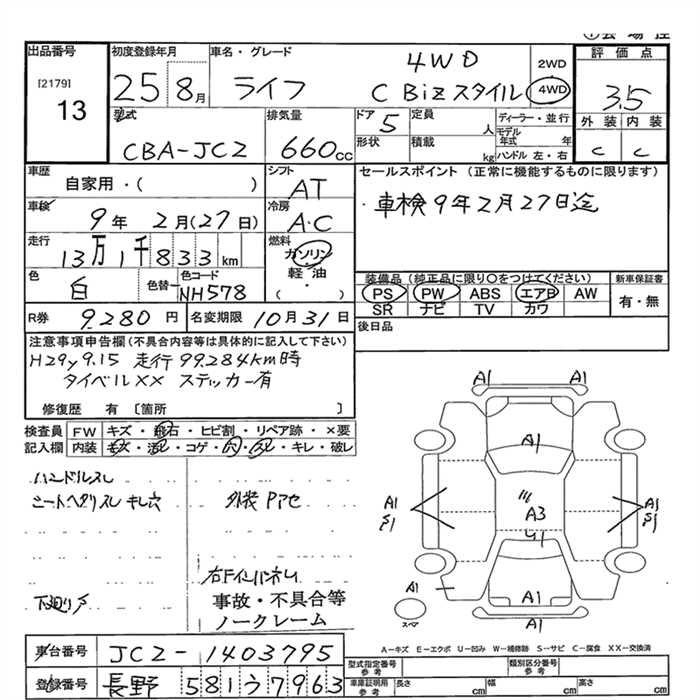 出品番号
[2179]
13
初度登録年月
25 8月
車名・グレード
4WD
ライフ C Biz スタイル
2WD
4WD
評価点
3.5
外装 内装
C C
型式
CBA-JC2
排気量
660cc
ドア 5
定員 人
形状
積載 kg
ディーラー・並行
モデル年式 年
ハンドル 左・右
車歴
自家用・( )
車検
9年 2月(27日)
走行
13万1千833km
色
白
色替
色コード
NH578
シフト
AT
冷房
A・C
燃料
ガソリン・
軽油・
( )
セールスポイント (正常に機能するものに限ります)
・車検9年2月27日迄
装備品(純正品に限り○をつけてください)
PS PW ABS エアB AW
SR ナビ TV カワ
新車保証書
有・無
R券 9,280円
名変期限 10月31日
後日品
注意事項申告欄(不具合内容等は具体的に記入して下さい)
H29y9.15 走行 99,284km時
タイベルXX ステッカー有
修復歴 有 〔箇所 〕
検査員
記入欄
FW キズ・飛石・ヒビ割・リペア跡・×要
内装 キズ・汚レ・コゲ・穴・スレ・キレ・破レ
ハンドルスレ
シートヘタリスレ キレ穴
外装 Pアセ
下廻りサ
事故・不具合等
ノークレーム
A1 A1
A1
A1 A1
S1 S1
A3
U1
A1
A1
スペア
A1 A1
A-キズ E-エクボ U-凹み W-補修跡 S-サビ C-腐食 XX-交換済
車台番号 JC2-1403795
登録番号 長野 581 う 7963
型式指定番号
参考
類別区分番号
参考
車庫証明用
参考
長さ cm
幅 cm
高さ cm